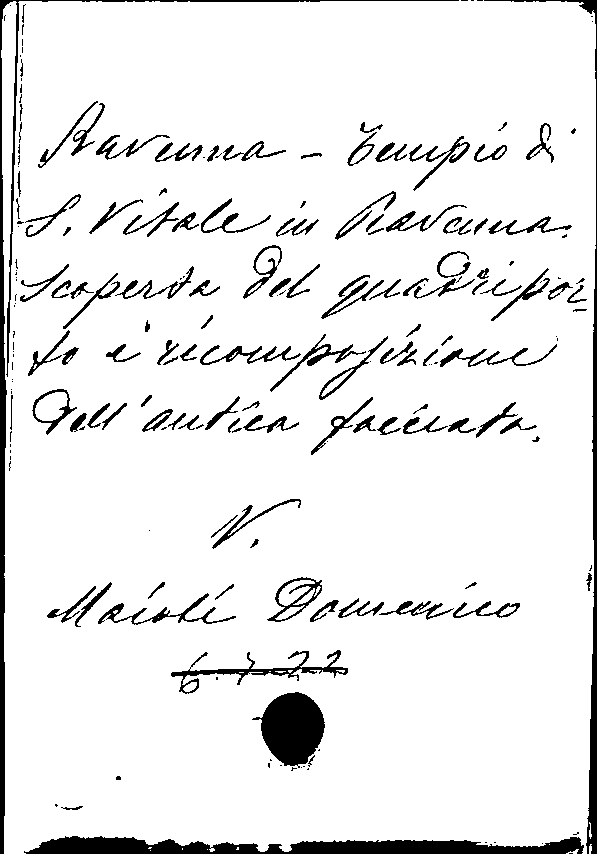 Ravenna - Tempio di
S. Vitale in Ravenna.
Scoperta del quadripor-
to e ricomposizione
dell'antica facciata.
V.
Maioli Domenico
6.7.22